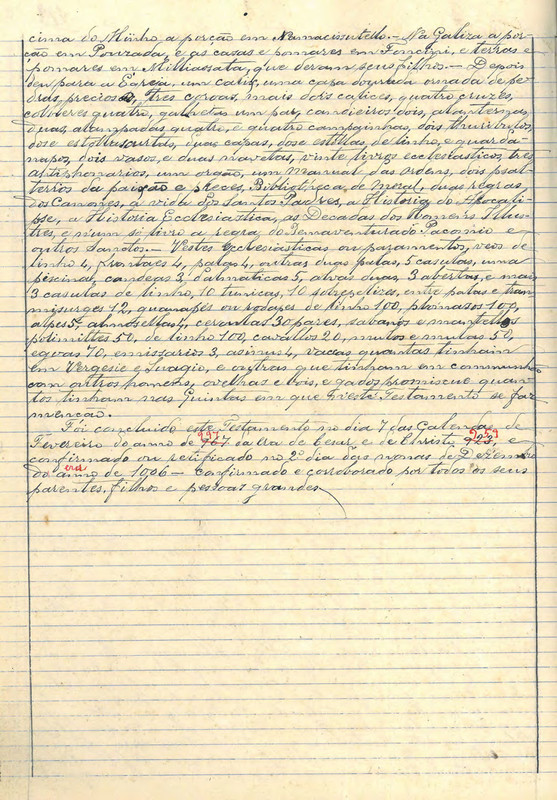 cima do Minho a porção em Namacissutello.- Na Galiza a por-
ção em Pouzada, e as casas e pomares em Foncini, e terras e
pomares em Milliassata, que deram seus filho.- Depois
dem para a Egreja, um calix, uma capa dourada ornada de pe-
dras preciosas, tres coroas, mais dois calices, quatro cruzes,
colheres quatro, galhetas um par, candieiros dois, alanternas
duas, alampadas quatro, e quatro campainhas, dois thuribulos,
dose estollas, duas capas, dose estollas de linho, e guarda
napos, dois vasos, e duas navetas, vinte livros ecclesiasticos, tres
antiphonarios, um orgão, um Manual das ordens, dois psal-
terios da paixão e preces, Bibliotheca, de Moral, duas regras
dos Canones, a vida dos Santos Padres, a Historia do Apocali-
pse, a Historia Ecclesiastica, as Decadas dos Homens Illus-
tres, e n'um só livro a regra do Bemaventurado Pacomio e
outros Sanctos.- Vestes ecclesiasticas ou paramentos, veos de
linho 4, frontaes 4, palas 4, outras duas palas, 5 casulas, uma
piscina, candeas 3, dalmaticas 5, alvas duas, 3 abertas, e mais
3 casulas de linho, 10 tunicas, 10 sobrepelizes, entre palas e tran
misurges 12, guanapes ou rodapes de linho 100, plumasos 100,
alpes 5, almosellas 4, ceroulas 30 pares, sabanos e mantellos
polimittes 50, de linho 100, cavallos 20, mulos e mulas 50,
egoas 70, emissarios 3, asinus 4, vaccas quantas tinham
em Vergesie e Suagio, e outras que tinham em communhão
com outros homens, ovelhas e bois, e gados promiscue quan-
tos tinham nas Quintas em que n'este Testamento se faz
menção.
Foi concluido este Testamento no dia 7 das Calendas de
Fevereiro do anno de 997 da era de Cesar, e de Christo 959, e
confirmado ou retificado no 2º dia das nonas de Dezembro
do era anno de 1006 - Confirmado e corroborado por todos os seus
parentes, filhos e pessoas grandes